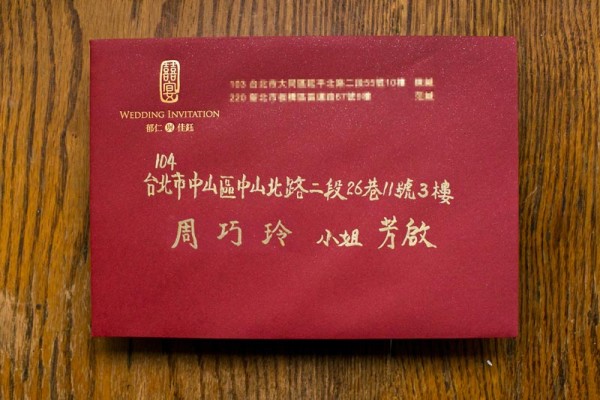 囍宴
WEDDING INVITATION
郁仁 與 佳鈺
103 台北市大同區延平北路二段55號10樓 陳緘
220 新北市板橋區 67號9樓 范緘
104
台北市中山區中山北路二段26巷11號3樓
周巧玲 小姐 芳啟